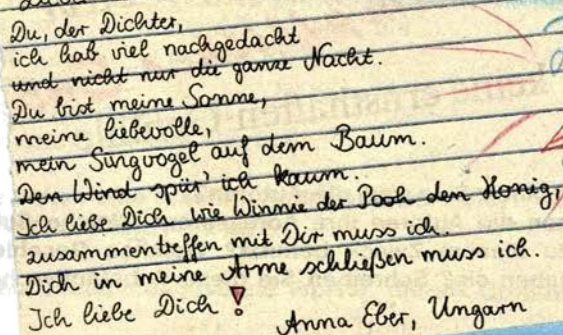 Du, der Dichter,
ich hab viel nachgedacht
und nicht nur die ganze Nacht.
Du bist meine Sonne,
meine liebevolle,
mein Singvogel auf dem Baum.
Den Wind spür' ich kaum.
Ich liebe Dich wie Winnie der Pooh den Honig,
zusammentreffen mit Dir muss ich.
Dich in meine Arme schließen muss ich.
Ich liebe Dich!
Anna Eber, Ungarn